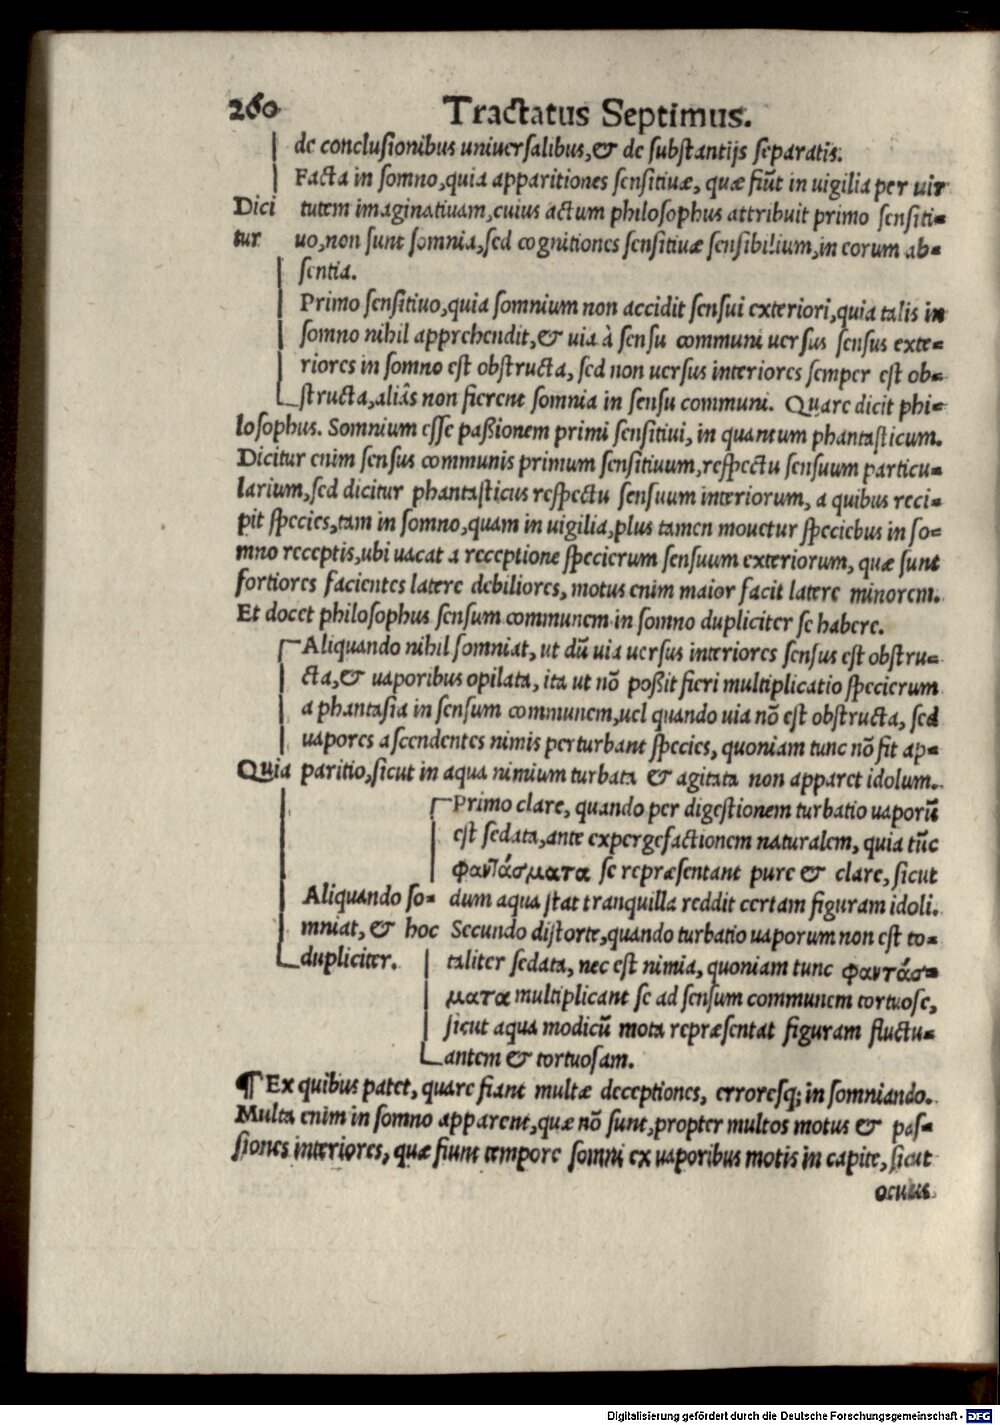 260 Tractatus Septimus.
de conclusionibus uniuersalibus, & de substantijs separatis.
Facta in somno, quia apparitiones sensitiuæ, quæ fiũt in uigilia per uir
Dici tutem imaginatiuam, cuius actum philosophus attribuit primo sensiti-
tur uo, non sunt somnia, sed cognitiones sensitiuæ sensibilium, in eorum ab-
sentia.
Primo sensitiuo, quia somnium non accidit sensui exteriori, quia talis in
somno nihil apprehendit, & uia à sensu communi uersus sensus exte-
riores in somno est obstructa, sed non uersus interiores semper est ob-
structa, aliâs non fierent somnia in sensu communi. Quare dicit phi-
losophus. Somnium esse passionem primi sensitiui, in quantum phantasticum.
Dicitur enim sensus communis primum sensitiuum, respectu sensuum particu-
larium, sed dicitur phantasticus respectu sensuum interiorum, a quibus reci-
pit species, tam in somno, quam in uigilia, plus tamen mouetur speciebus in so-
mno receptis, ubi uacat a receptione specierum sensuum exteriorum, quæ sunt
fortiores facientes latere debiliores, motus enim maior facit latere minorem.
Et docet philosophus sensum communem in somno dupliciter se habere.
Aliquando nihil somniat, ut dũ uia uersus interiores sensus est obstru-
cta, & uaporibus opilata, ita ut nõ possit fieri multiplicatio specierum
a phantasia in sensum communem, uel quando uia nõ est obstructa, sed
uapores ascendentes nimis perturbant species, quoniam tunc nõ fit ap-
Quia paritio, sicut in aqua nimium turbata & agitata non apparet idolum.
Primo clare, quando per digestionem turbatio uaporũ
est sedata, ante expergefactionem naturalem, quia tũc
φαντάσματα se repræsentant pure & clare, sicut
Aliquando so- dum aqua stat tranquilla reddit certam figuram idoli.
mniat, & hoc Secundo distorte, quando turbatio uaporum non est to-
dupliciter. taliter sedata, nec est nimia, quoniam tunc φαντάσ-
ματα multiplicant se ad sensum communem tortuose,
sicut aqua modicũ mota repræsentat figuram fluctu-
antem & tortuosam.
¶ Ex quibus patet, quare fiant multæ deceptiones, erroresq; in somniando.
Multa enim in somno apparent, quæ nõ sunt, propter multos motus & pas-
siones interiores, quæ fiunt tempore somni ex uaporibus motis in capite, sicut
oculus
Digitalisierung gefördert durch die Deutsche Forschungsgemeinschaft - DFG